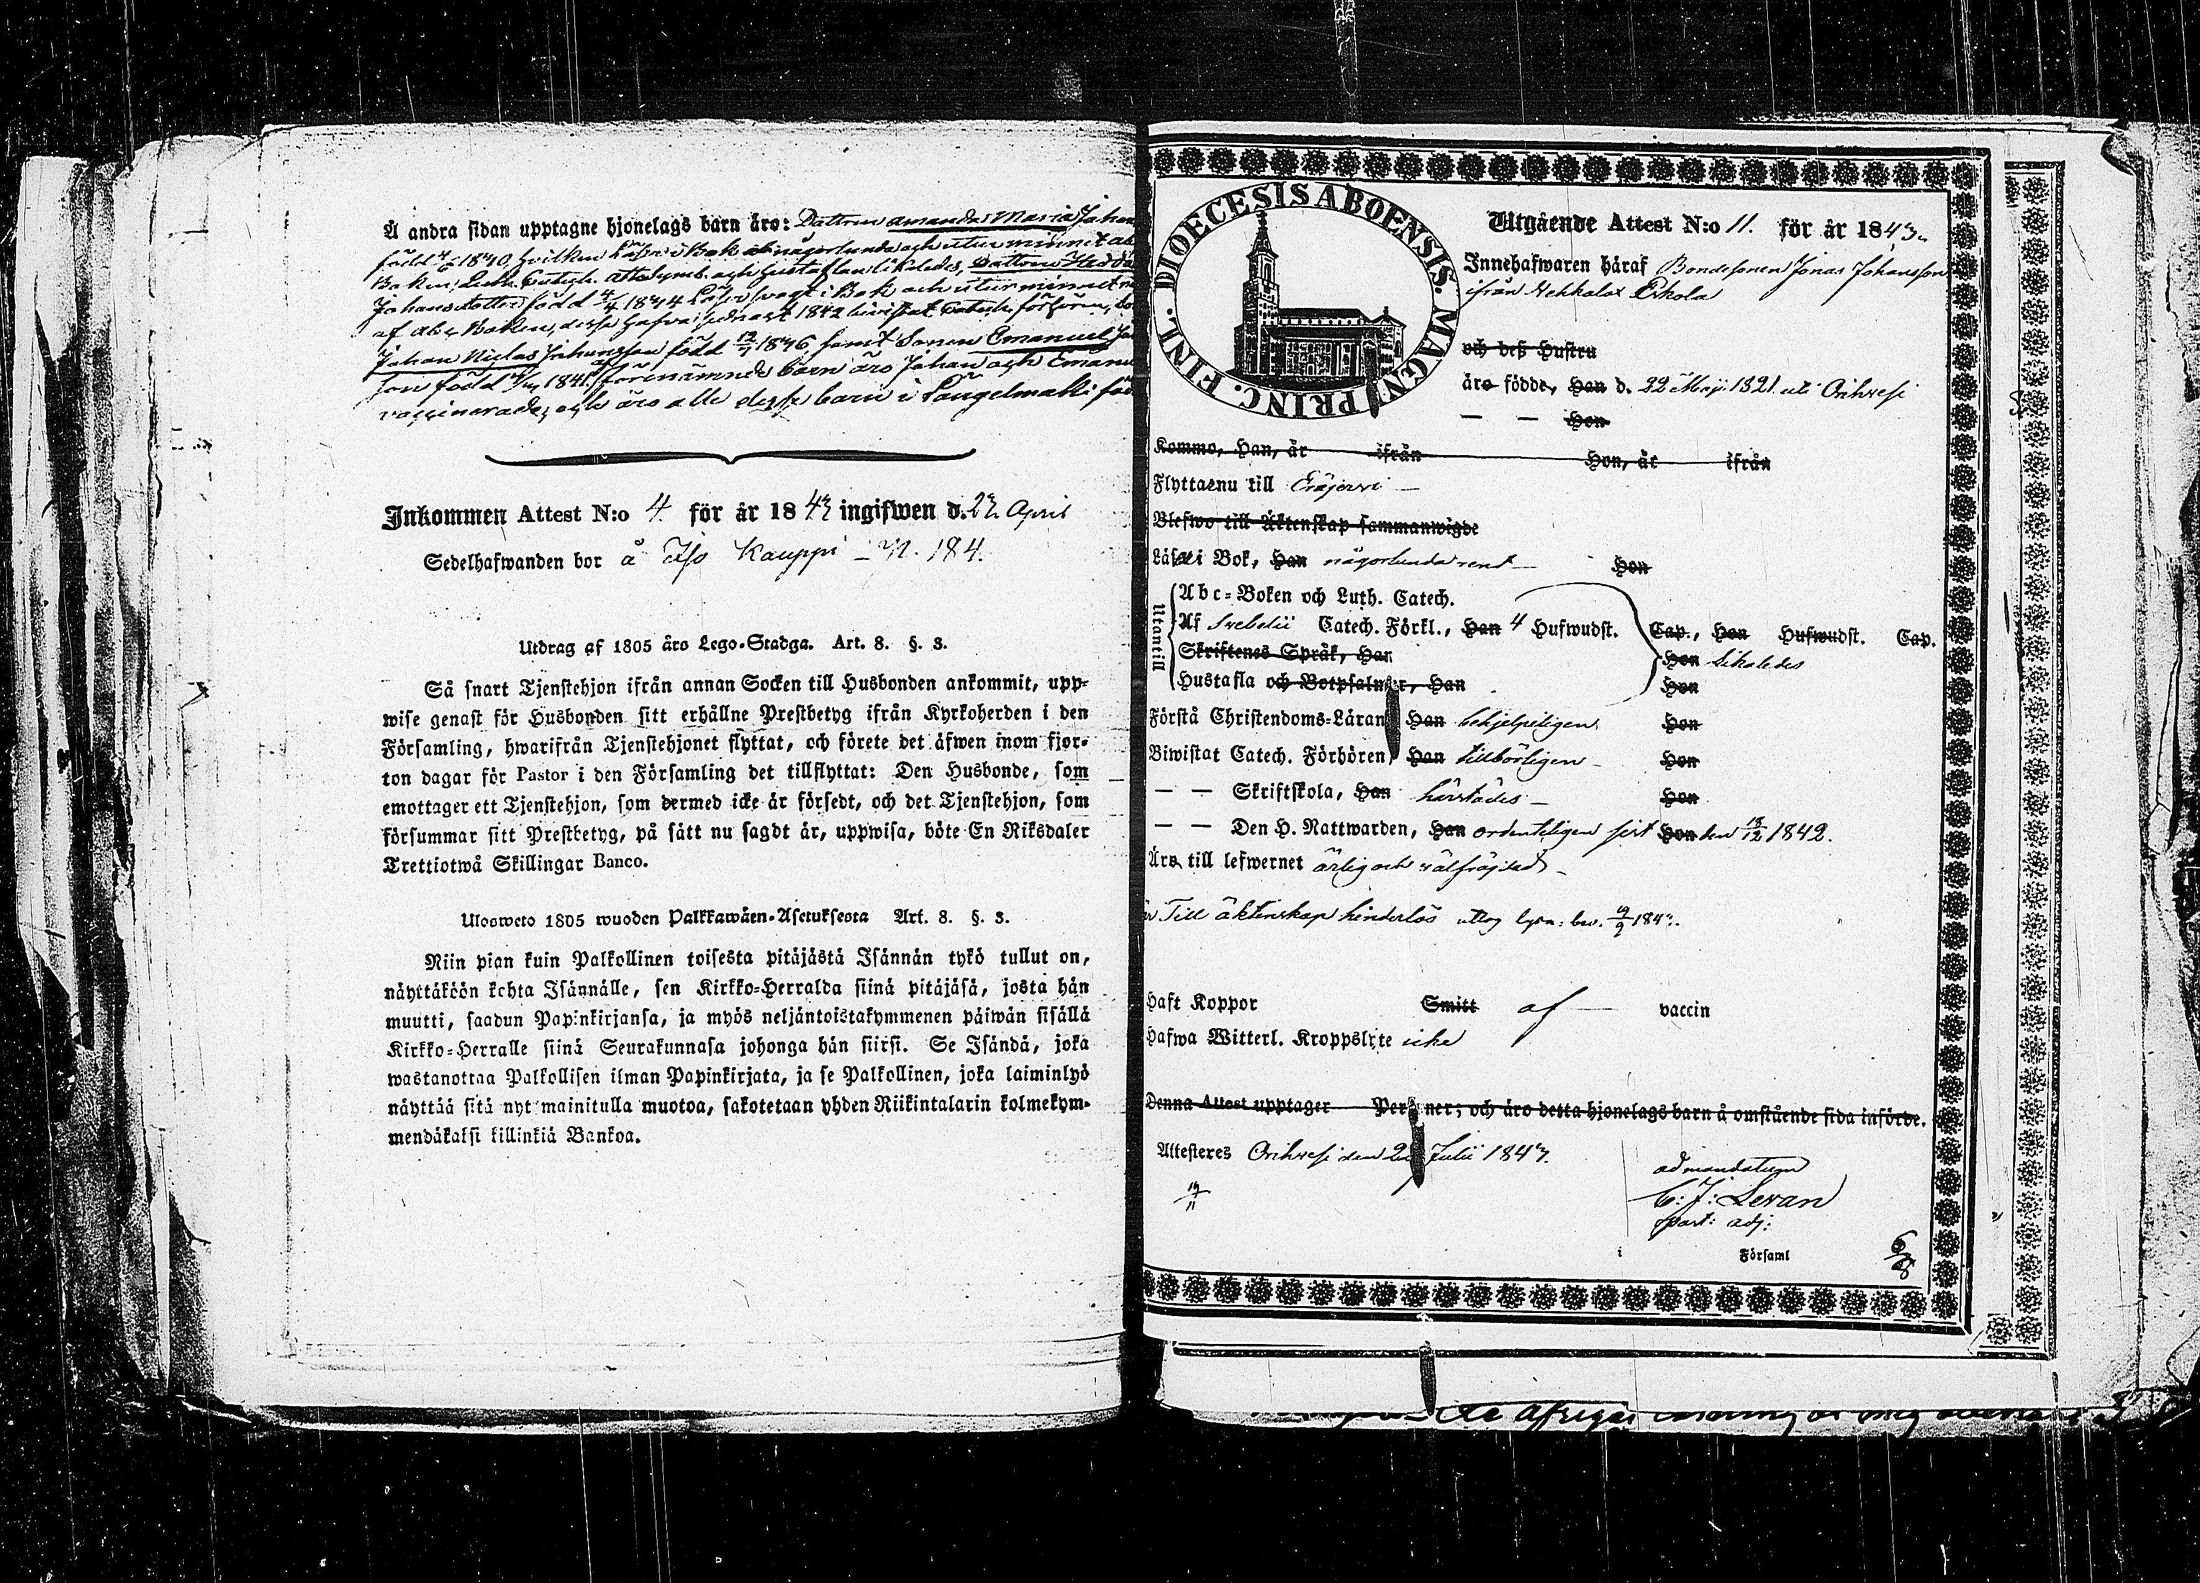 Å andra sidan upptagne hjonelags barn äro: Dottren Amanda Maria Johan
född 1840, hvilken läser i Bok någorlunda och utur minnet ab
Boken, Luth. Catech. Ath. Symb. och Hustaflan likaledes, Dottren Hedda
Johansdotter född 1834 läser svagt i Bok och utur minnet
af abc Boken, desse hafva sednast 1842 bivistat Catech. förhören,
Johan Niclas Johansson född 1836 samt Sonen Emanuel
son född 1841, förenämnde barn äro Johan och Emanu
vaccinerade, och äro alle desse barn i Längelmäki föd
Inkommen Attest N:o 4. för år 1843 ingifwen d. 27 April
Sedelhafwanden bor å Iso Kauppi — 184.
Utdrag af 1805 års Lego-Stadga. Art. 8. §. 3.
Så snart Tjenstehjon ifrån annan Socken till Husbonden ankommit, upp-
wise genast för Husbonden sitt erhållne Prestbetyg ifrån Kyrkoherden i den
Församling, hwarifrån Tjenstehjonet flyttat, och förete det äfwen inom fjor-
ton dagar för Pastor i den Församling det tillflyttat: Den Husbonde, som
emottager ett Tjenstehjon, som dermed icke är försedt, och det Tjenstehjon, som
försummar sitt Prestbetyg, på sätt nu sagdt är, uppwisa, böte En Riksdaler
Trettiotwå Skillingar Banco.
Ulosweto 1805 wuoden Palkkawäen-Asetuksesta Art. 8. §. 3.
Niin pian kuin Palkollinen toisesta pitäjästä Isännän tykö tullut on,
näyttäköön kohta Isännälle, sen Kirkko-Herralda siinä pitäjäsä, josta hän
muutti, saadun Papinkirjansa, ja myös neljäntoistakymmenen päiwän sisällä
Kirkko-Herralle siinä Seurakunnasa johonga hän siirsi. Se Isändä, joka
wastanottaa Palkollisen ilman Papinkirjata, ja se Palkollinen, joka laiminlyö
näyttää sitä nyt mainitulla muotoa, sakotetaan yhden Riikintalarin kolmekym-
mendäkaksi killinkiä Bankoa.
DIOECESIS ABOENSIS. MAGN. PRINC. FINL.
Utgående Attest N:o 11. för år 1843.
Innehafwaren häraf Bondesonen Jonas Johansson
ifrån Hehkalax Erkola
och deß Hustru
äro födde, Han d. 22 Maji 1821 uti Orihvesi
— — Hon
Komne, Han, år ifrån Hon, år ifrån
Flyttaenu till Eräjervi —
Blefwo till Äktenskap sammanwigde
Läsa i Bok, Han någorlunda rent — Hon
Utantill
Abc-Boken och Luth. Catech.
Af Svebelii Catech. Förkl., Han 4 Hufwudst. Cap., Hon Hufwudst. Cap.
Skriftenes Språk, Han Hon likaledes
Hustafla och Botpsalmer, Han Hon
Förstå Christendoms-Läran Han behjelpeligen Hon
Biwistat Catech. Förhören, Han tillbörligen — Hon
— — Skriftskola, Han härstädes — Hon
— — Den H. Nattwarden, Han ordenteligen sist Hon den 18/12 1842.
Äro till lefwernet ärlig och välfräjdad —
är Till äktenskap hinderlös uttog lysn: bev. 19/9 1843.
Haft Koppor Smitt af — vaccin
Hafwa Witterl. Kroppslyte icke
Denna Attest upptager Personer; och äro detta hjonelags barn å omstående sida införde.
Attesteres Orihvesi den Julii 1843.
19/11
ad mandatum
C: J: Levan
past: adj:
i Församl